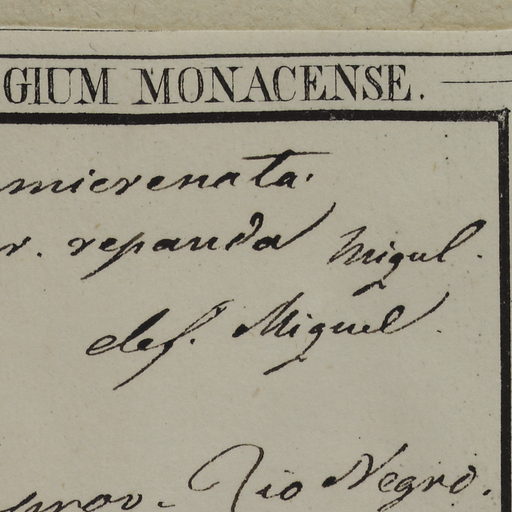 GIUM MONACENSE.
micrenata.
r. repanda Miqul.
def. Miquel.
prov. Rio Negro.